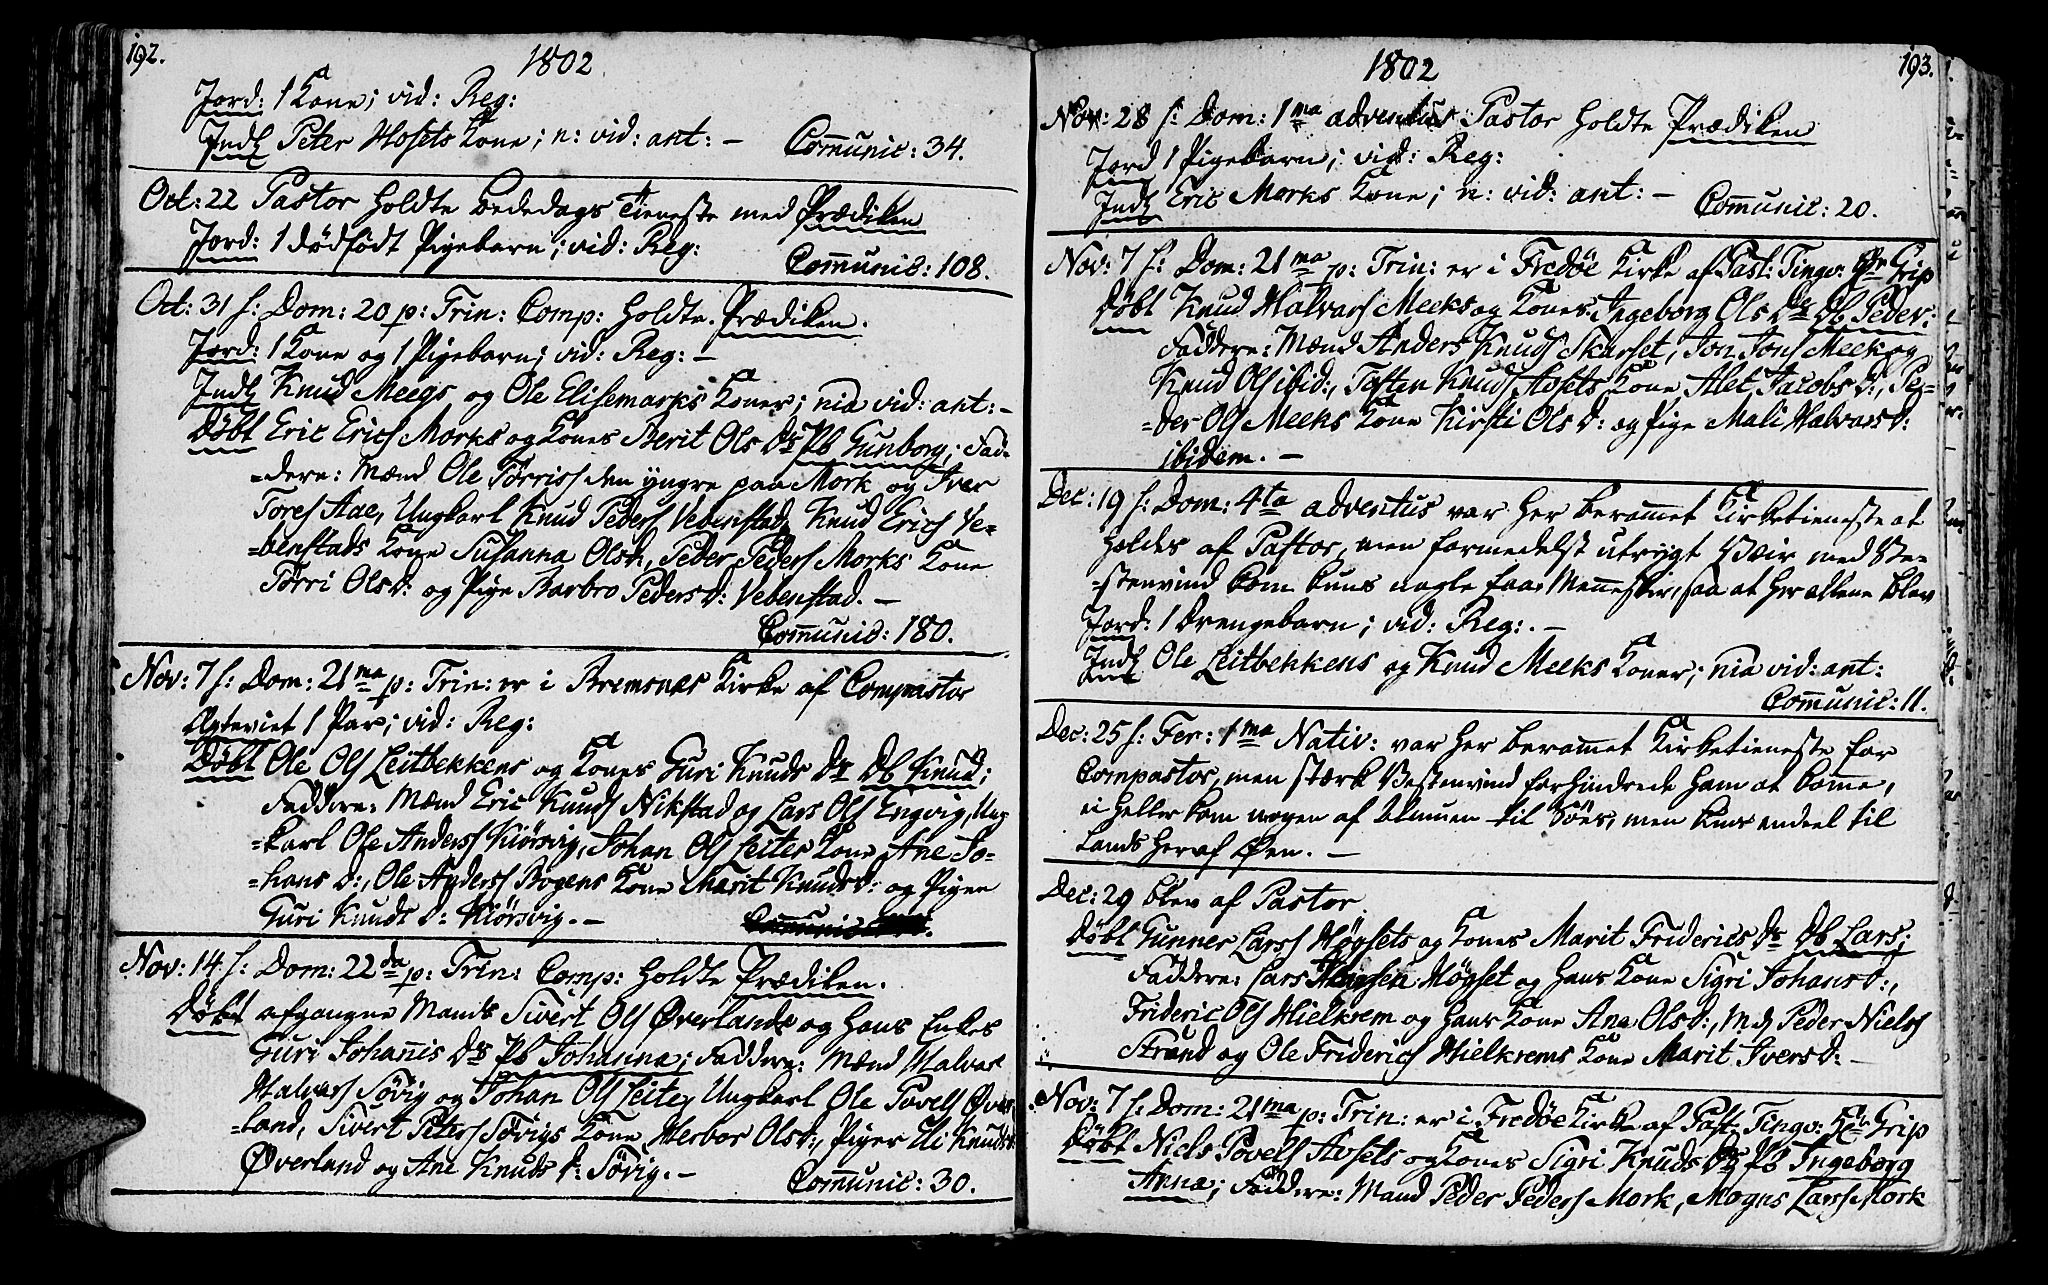 192.
1802
Jord: 1 Kone; vid: Reg:
Indl Peter Hosets Kone; n: vid: ant: – Communic: 34.
Oct: 22 Pastor holdte Bededags Tieneste med Prædiken
Jord: 1 dødfødt Pigebarn; vid: Reg:
Communic: 108.
Oct: 31 s: Dom: 20 p: Trin: Comp: holdte Prædiken.
Jord: 1 Kone og 1 Pigebarn; vid: Reg: –
Indl Knud Meegs og Ole Elisemarks Koner; nia vid: ant: –
Døbt Eric Erics Morks og Kones Berit Ols Dr Pb Gunborg; Fad-
=dere: Mænd Ole Tørriss den yngre paa Mork og Iver
Tores Aae, Ungkarl Knud Peders Vebenstad, Knud Erics Ve-
=benstads Kone Susanna Olsd:, Peder Peders Morks Kone
Tørri Ols d: og Pige Barbro Peders d: Vebenstad. –
Communic: 180.
Nov: 7 s: Dom: 21ma p: Trin: er i Bremsnæs Kirke af Compastor
Ægteviet 1 Par; vid: Reg:
Døbt Ole Ols Leitbekkens og Kones Guri Knuds Dr Db Knud;
Faddere: Mænd Eric Knuds Nikstad og Lars Ols Engvig, Ung
=karl Ole Anderss Kiørsvig, Johan Ols Leites Kone Ane Jo-
=hans d:, Ole Anderss Bogens Kone Marit Knuds d: og Pigen
Guri Knudt d: Kiørsvig. –
Nov: 14 s: Dom: 22da p: Trin: Comp: holdte Prædiken.
Døbt afgangne Mands Sivert Ols Øverlands og hans Enkes
Guri Johannis Dr Pb Johanna; Faddere: Mænd Halvar
Halvars Søvig og Johan Ols Leite, Ungkarl Ole Povels Øver
=land, Sivert Peters Søvigs Kone Herbor Olsd:, Piger Eli Knudsd:
Øverland og Ane Knuds d: Søvig. –
Communic: 30.
193.
1802
Nov: 28 s: Dom: 1ma adventus Pastor holdte Prædiken
Jord 1 Pigebarn; vid: Reg:
Indl Eric Morks Kone; n: vid: ant: –
Communic: 20.
Nov: 7 s: Dom: 21ma p: Trin: er i Fredøe Kirke af Past: Tingv: Hr Grip
Døbt Knud Halvars Meeks og Kones Ingeborg Ols Dr Db Peder;
Faddere: Mænd Anders Knuds Skarset, Jon Jons Meek og
Knud Ols ibid:, Tosten Knuds Aasets Kone Alet Jacobs d:, Pe-
=der Ols Meeks Kone Kirsti Ols d: og Pige Mali Halvars d:
ibidem. –
Dec: 19 s: Dom: 4ta adventus var her berammet Kirketieneste at
holdes af Pastor, men formedelst utrygt Veir med Ve-
=stenvind kom kuns nogle faa Mennesker, saa at her allene blev
Jord: 1 Drengebarn; vid: Reg:. –
Indl Ole Leitbekkens og Knud Meeks Koner; nia vid: ant:
Communic: 11.
Dec: 25 s: Fer: 1ma Nativ: var her berammet Kirketieneste for
Compastor, men stærk Vestenvind forhindrede ham at komme,
ei heller kom nogen af Almuen til Søes, men kuns endeel til
Lands her af Øen. –
Dec: 29 blev af Pastor
Døbt Gunner Larss Høgsets og Kones Marit Friderics Dr Db Lars;
Faddere: Lars Hansen Høgset og hans Kone Sigri Johans d:,
Frideric Ols Hielkrem og hans Kone Ana Ols d:, Md Peder Niels
Strand og Ole Friderics Hielkrems Kone Marit Ivers d: –
Nov: 7 s: Dom: 21ma p: Trin: er i Fredøe Kirke af Past: Tingv: Hr Grip
Døbt Niels Povels Aasets og Kones Sigri Knuds Dr Pb Ingeborg
Anna; Faddere: Mænd Peder Peders Mork, Mogns Lars Mork